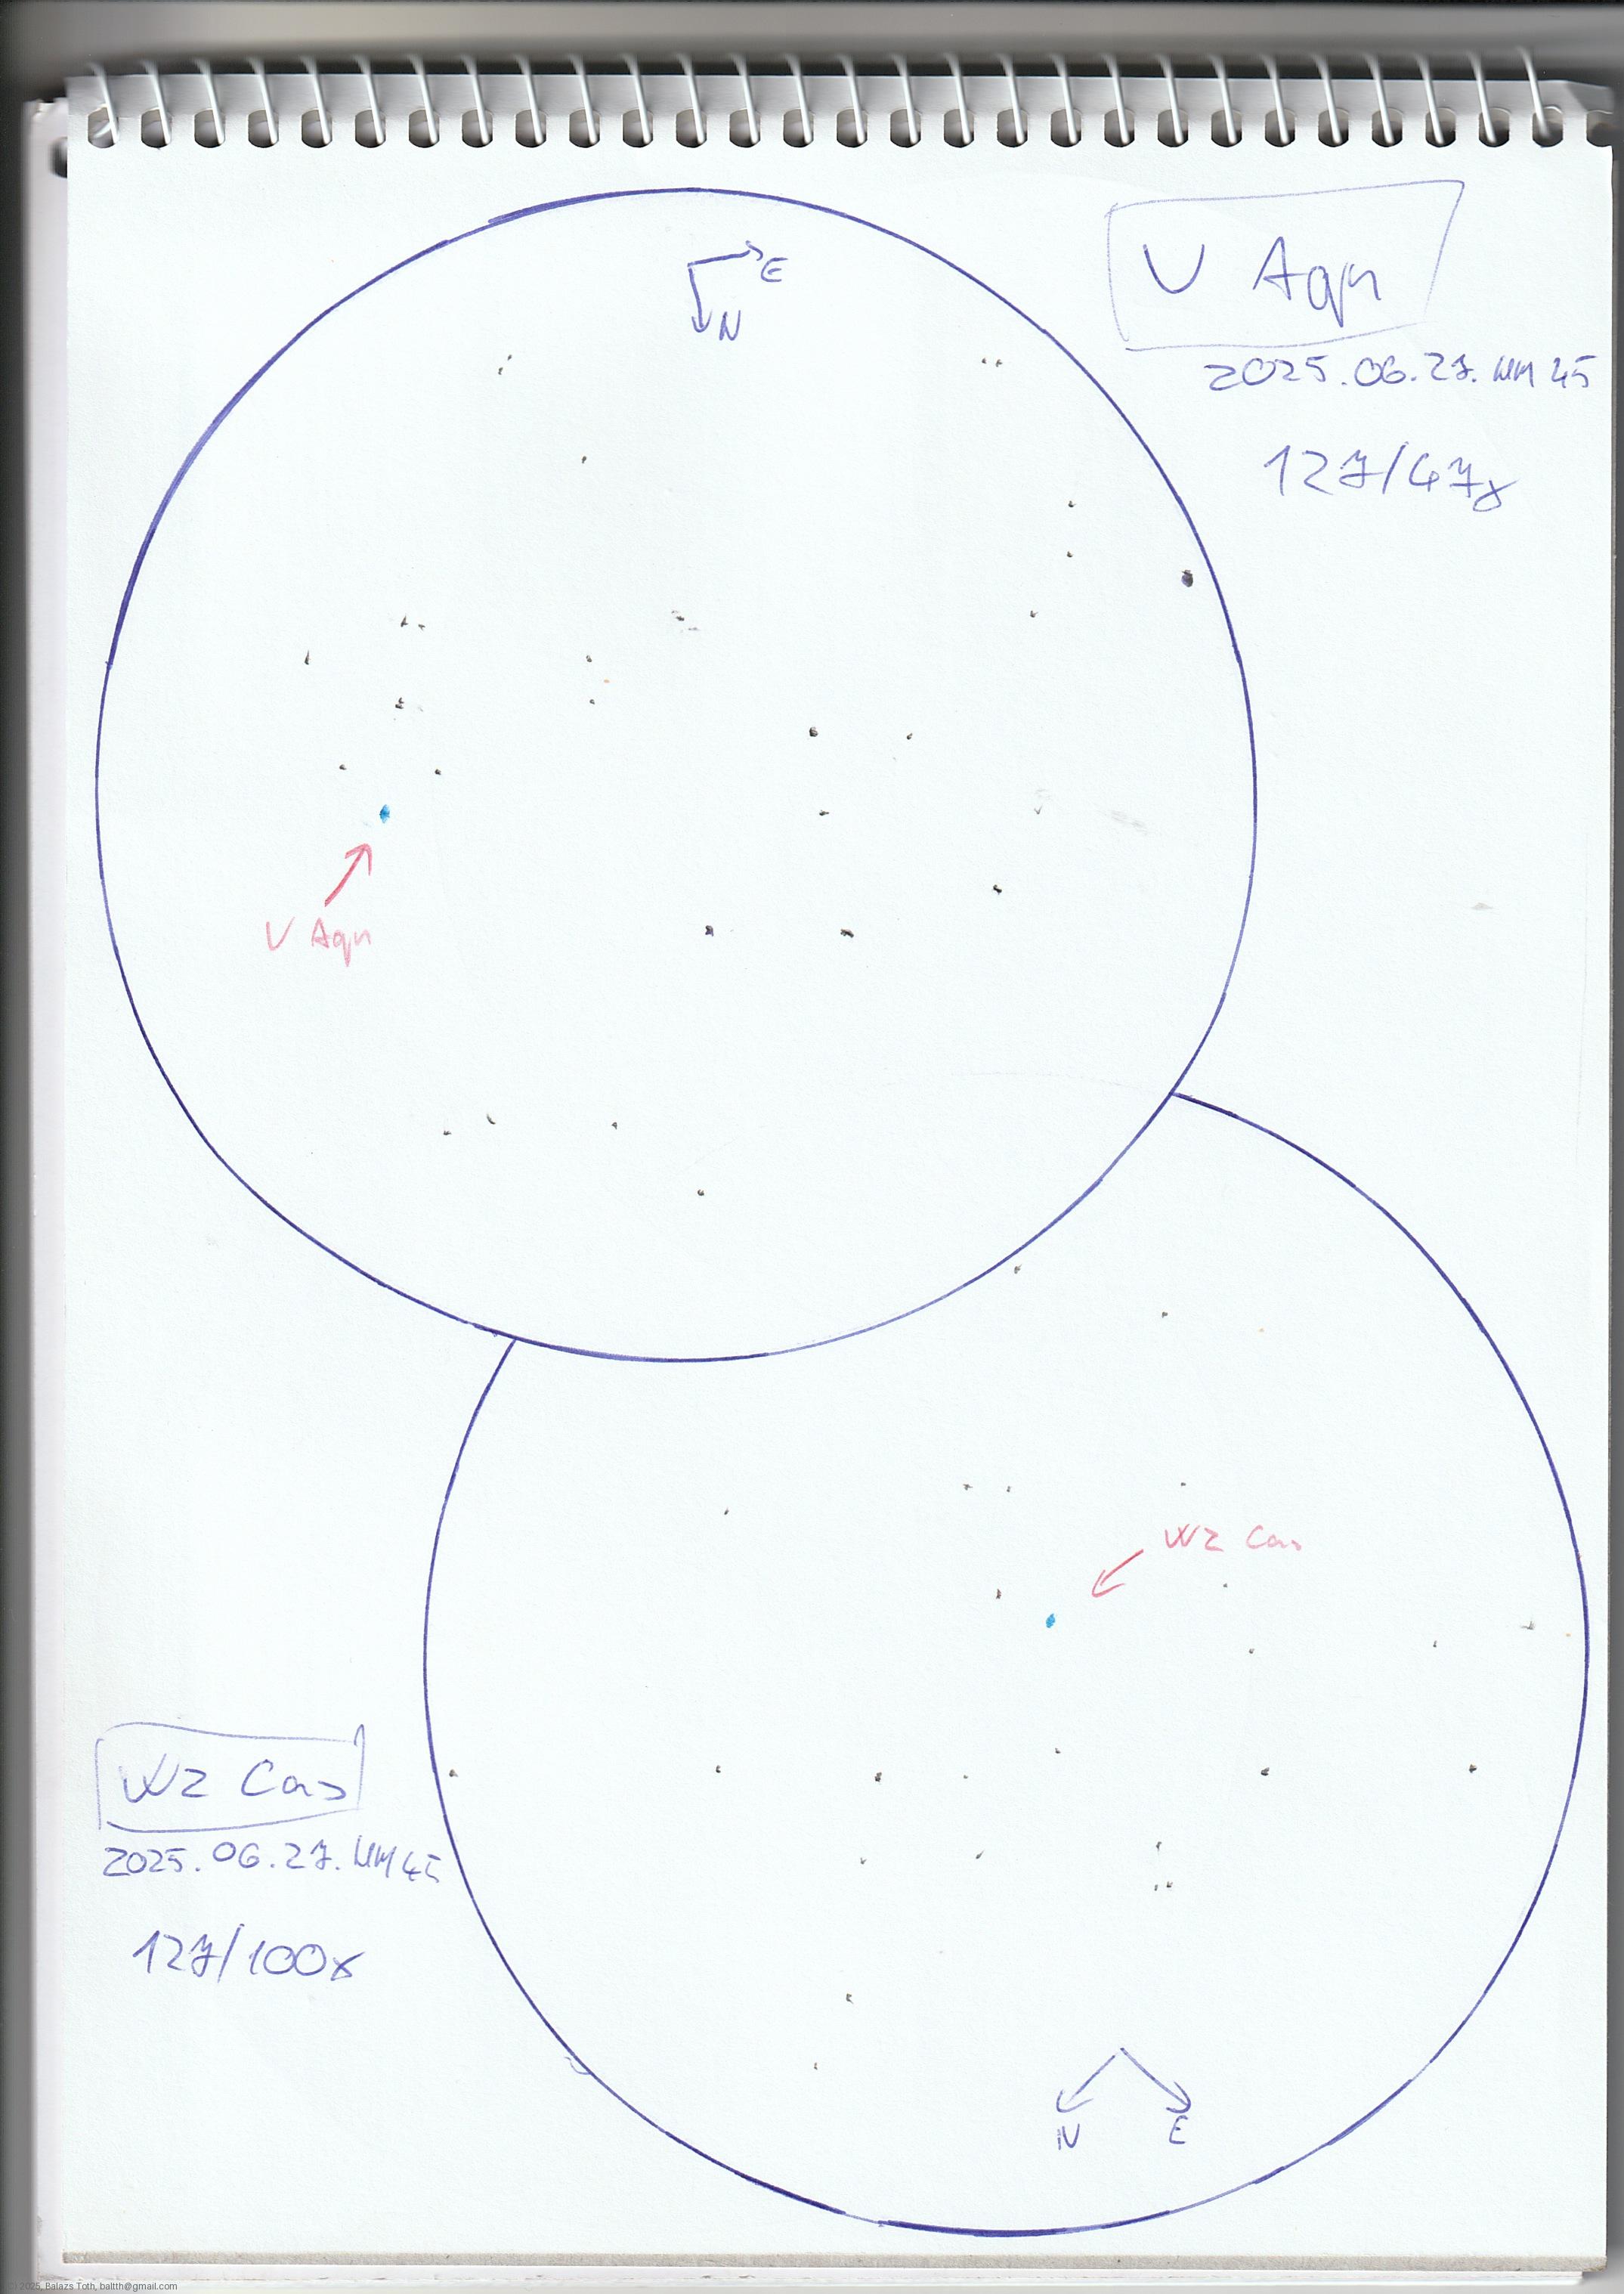 E
N
V Aqu
2025.06.27. MM 45
127/47x
V Aql
WZ Cas
WZ Cas
2025.06.27. MM 45
127/100x
N
E
© 2025, Balazs Toth, baltth@gmail.com